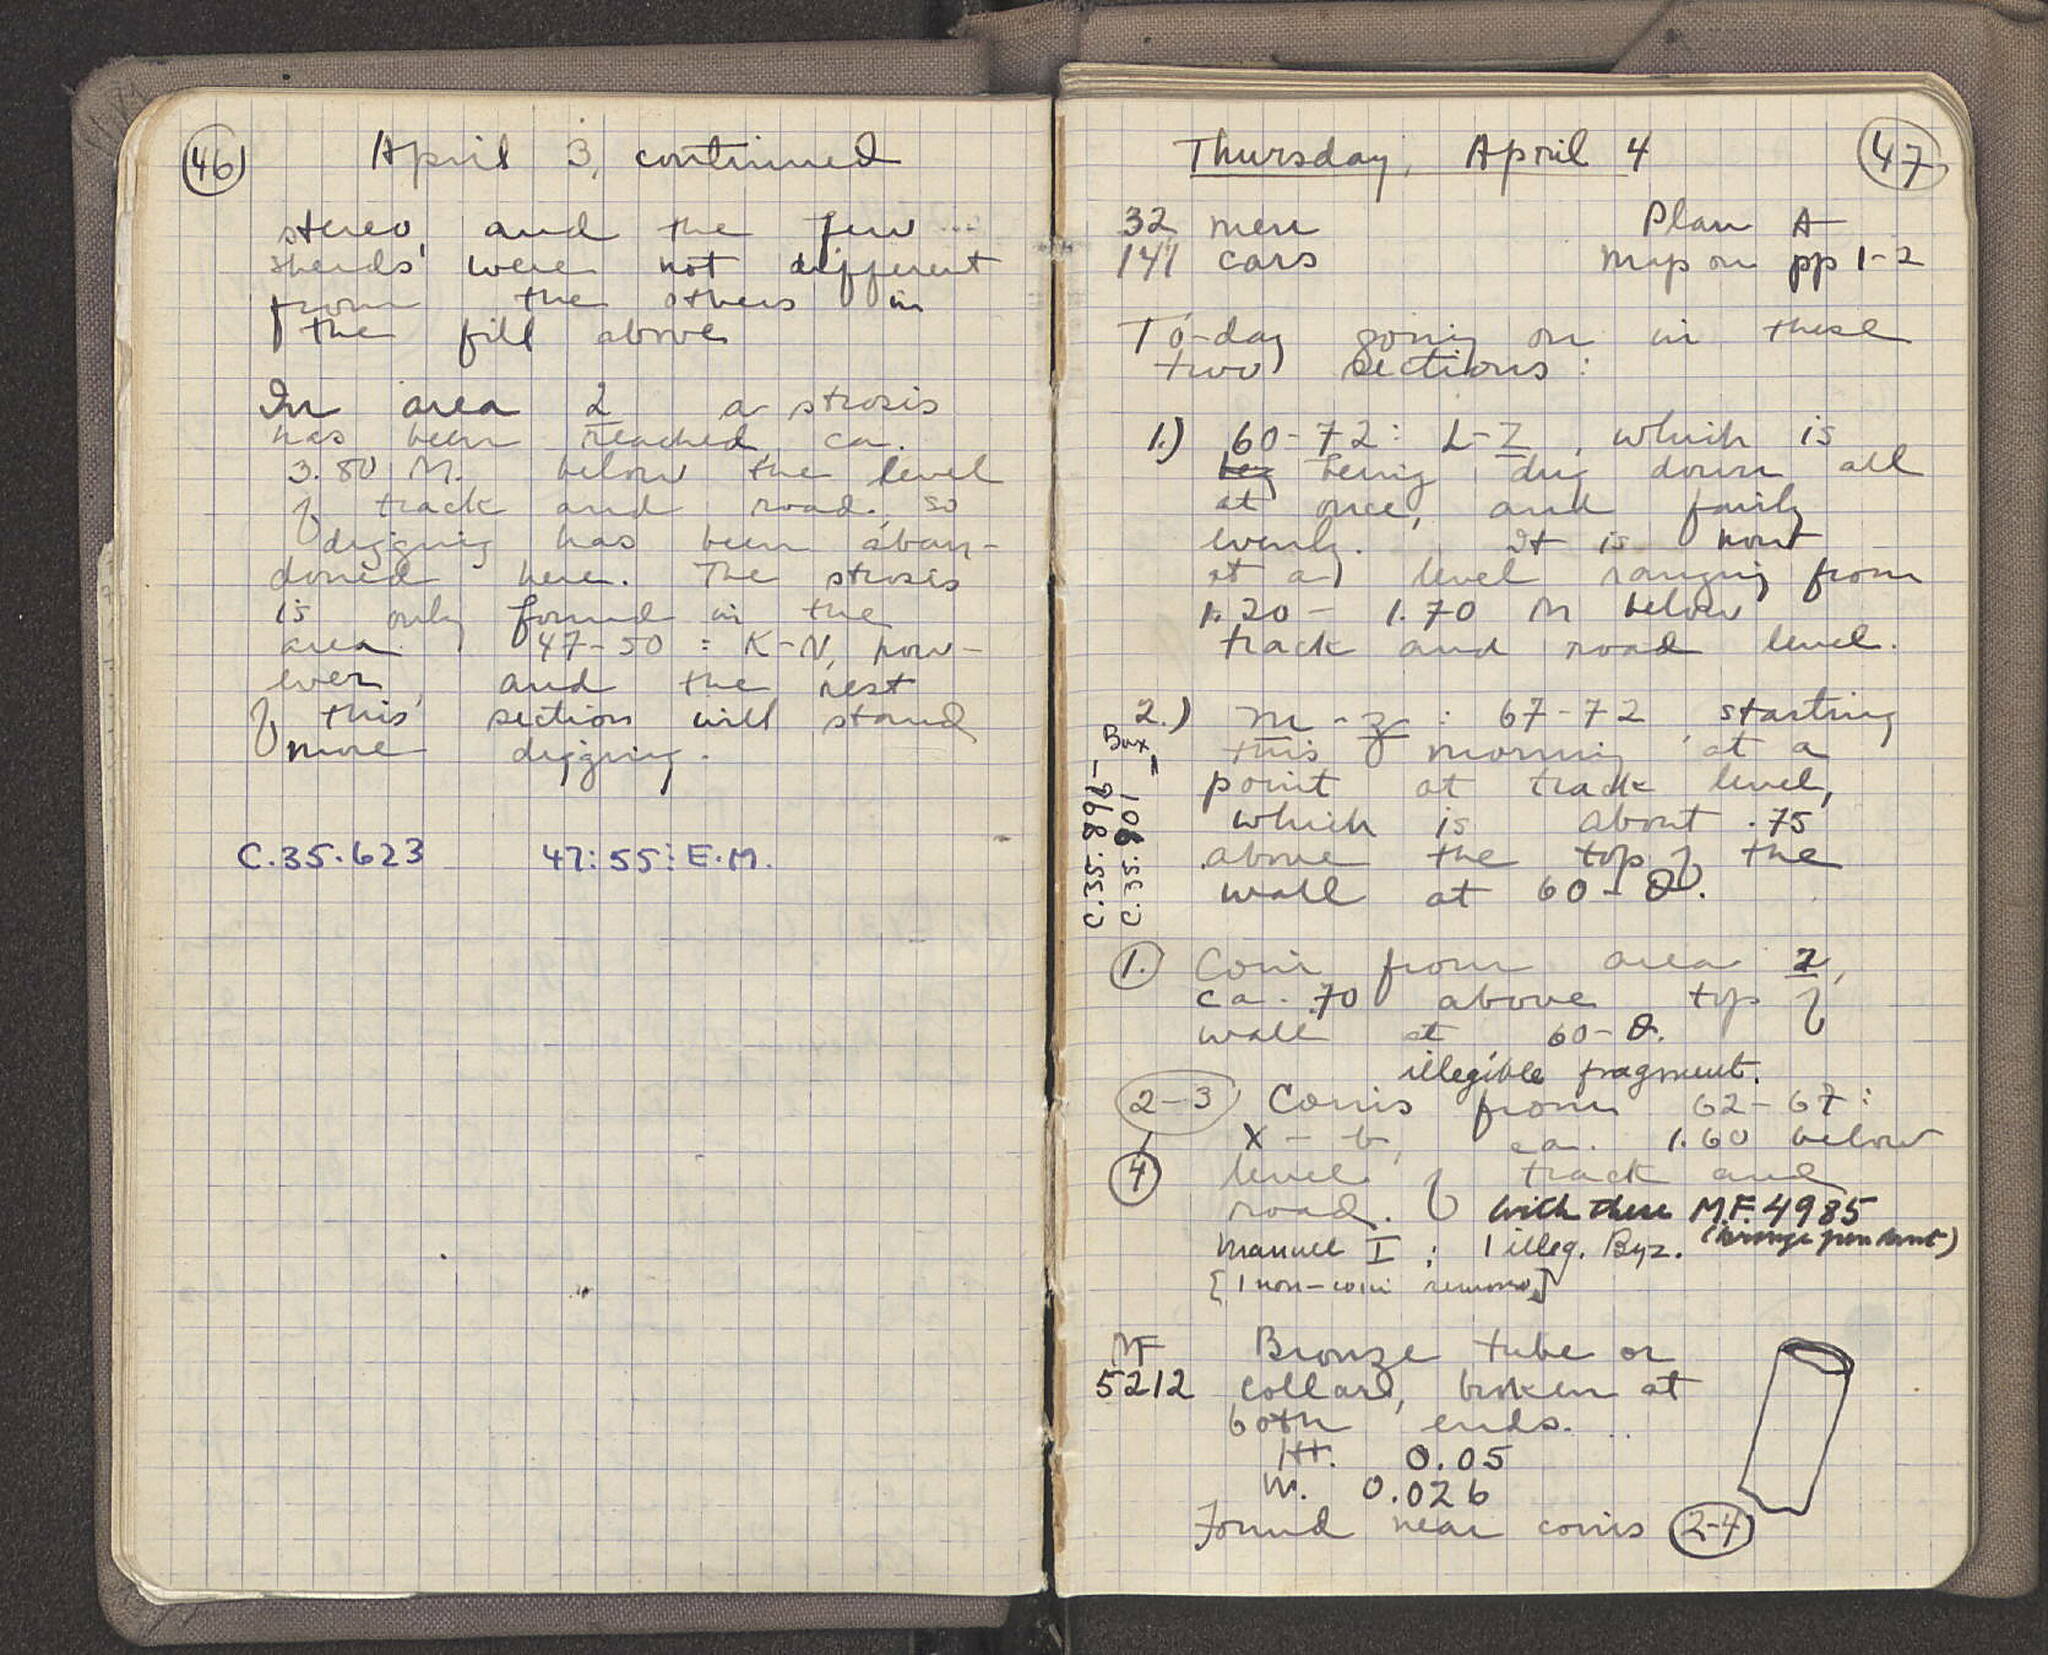 46
April 3, continued
stereo, and the few
sherds were not different
from the others in
the fill above
In area 2 a strosis
has been reached, ca.
3.80 M. below the level
of track and road, so
digging has been aban-
doned here. The strosis
is only found in the
area 47-50 : K-N, how-
ever, and the rest
of this section will stand
more digging.
C.35.623 47:55:E.M.
47
Thursday, April 4
32 men Plan A
141 cars Map on pp 1-2
To-day going on in these
two sections:
1.) 60-72: L-Z, which is
beg being dug down all
at once, and fairly
evenly. It is now
at a level ranging from
1.20 - 1.70 M below
track and road level.
2.) m-z : 67-72 starting
this morning at a
point at track level,
which is about .75
above the top of the
wall at 60-θ.
Box 1
C.35.896-
C.35.901
1. Coin from area 2,
ca .70 above top of
wall at 60-θ.
illegible fragment.
2-3 Coins from 62-67:
X - b, ca. 1.60 below
4 level of track and
road. with these M.F. 4985
(bronze pendant)
Manuel I ; 1 illeg. Byz.
[1 non-coin removed]
MF
5212
Bronze tube or
collar, broken at
both ends.
Ht. 0.05
W. 0.026
Found near coins 2-4